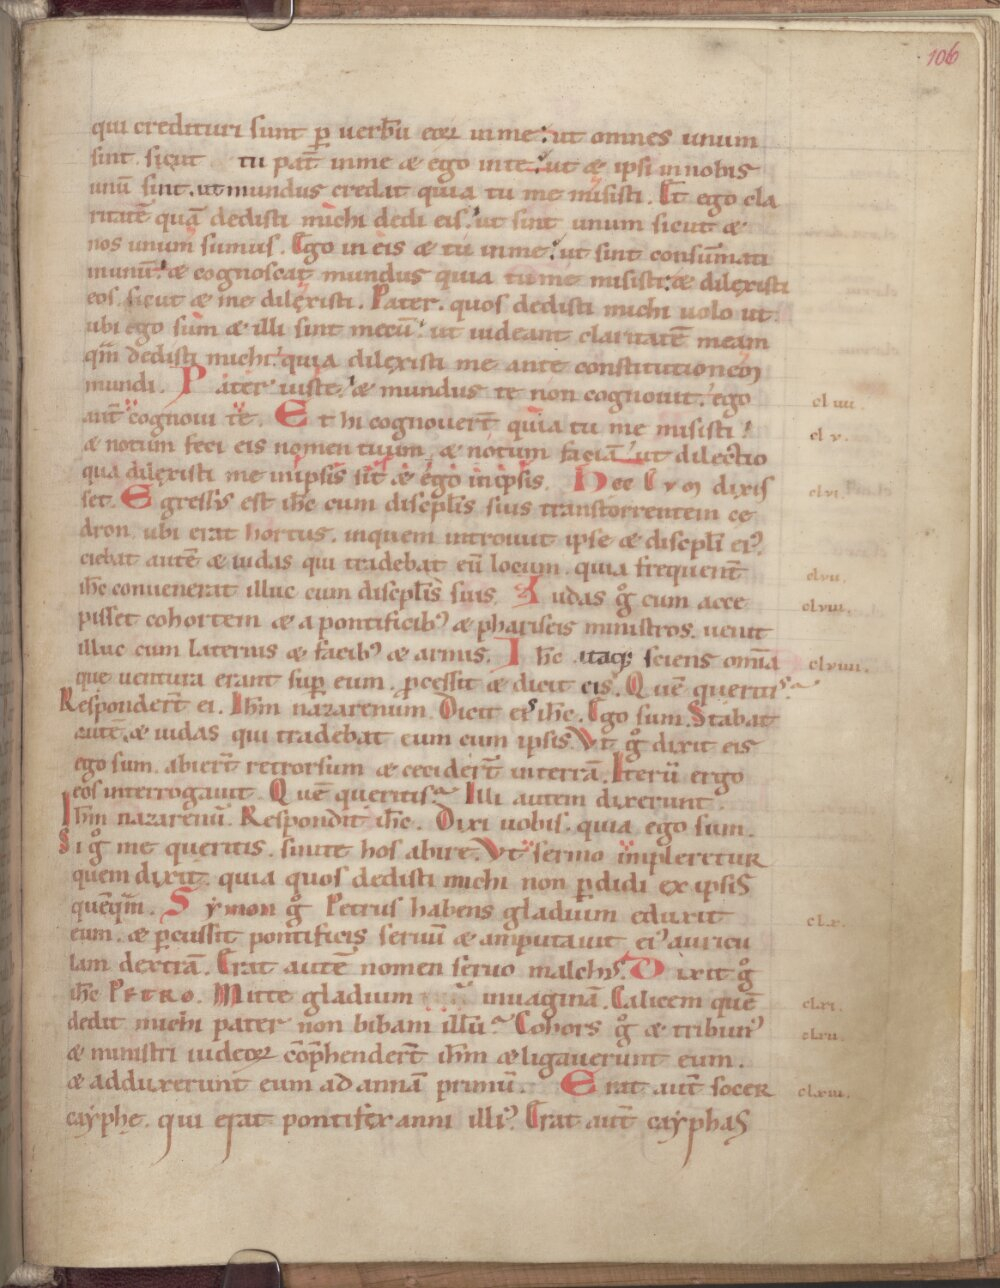 106
qui credituri sunt ꝑ uerbū eoꝝ in me. ut omnes unum
sint. sicut tu pat̄ in me & ego in te. ut & ipsi in nobis
unū sint. ut mundus credat quia tu me misisti. Et ego cla
ritatē quā dedisti michi dedi eis. ut sint unum sicut &
nos unum sumus. Ego in eis & tu in me. ut sint consūmati
in unū. & cognoscat mundus quia tu me misisti. & dilęxisti
eos. sicut & me dilęxisti. Pater. quos dedisti michi uolo ut
ubi ego sum & illi sint mecū. ut uideant claritatē meam
qm̄ dedisti michi. quia dilęxisti me ante constitutionem
mundi. Pater iuste. & mundus te non cognouit. ego
aut̄ cognoui te. Et hi cognouer̄t quia tu me misisti.
cl iiii.
& notum feci eis nomen tuum. & notum faciā. ut dilectio
cl v.
qua dilęxisti me in ipsis sit & ego in ipsis. Hec Cum dixis
clvi.
set. Egressus est ih̄c cum discipl̄is suis trans torrentem ce
dron. ubi erat hortus. in quem introiuit ipse & discipl̄i ei᾿.
ciebat autē & iudas qui tradebat eū locum. quia frequent̄
clvii.
ih̄c conuenerat illuc cum discipl̄is suis. Iudas g̊ cum acce
clviii.
pisset cohortem & a pontificib᾿ & phariseis ministros. uenit
illuc cum laternis & facib᾿ & armis. Ih̄c itaq; sciens omīa
clviiii.
que uentura erant sup̱ eum. ꝓcessit & dicit eis. Quē queritis
Responder̄t ei. Ih̄m nazarenum. Dicit eis ih̄c. Ego sum. Stabat
autē & iudas qui tradebat eum cum ipsis. Vt g̊ dixit eis
ego sum. abier̄t retrorsum & cecider̄t in terrā. Iterū ergo
eos interrogauit. Quē queritis. Illi autem dixerunt.
Ih̄m nazarenū. Respondit ih̄c. Dixi uobis. quia ego sum.
Si g̊ me queritis. sinite hos abire. Vt sermo impleretur
quem dixit. quia quos dedisti michi non ꝑdidi ex ipsis
quēq̄m. Symon g̊ Petrus habens gladium eduxit
clx.
eum. & ꝑcussit pontificis seruū & amputauit ei᾿ auricu
lam dextrā. Erat autē nomen seruo malchus. Dixit g̊
ih̄c Petro. Mitte gladium in uaginā. Calicem quē
clxi.
dedit michi pater non bibam illū. Cohors g̊ & tribun᾿
clxii.
& ministri iudeoꝝ cōp̄hender̄t ih̄m & ligauerunt eum.
& adduxerunt eum ad annā primū. Erat aut̄ socer
clxiii.
caẏphę. qui erat pontifex anni illi᾿. Erat aut̄ caẏphas